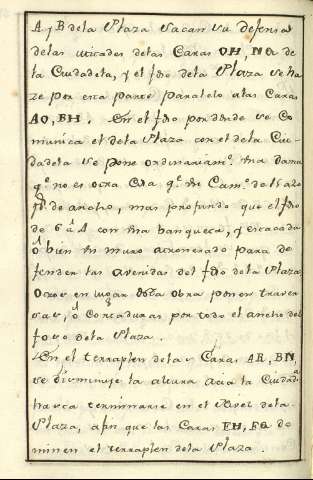 A, y B dela Plaza sacan su defensa
delas mitades delas Caras OH, NQ de
la Ciudadela, y el foso dela Plaza se ha
ze por esta parte paralelo alas Caras
AO, BH. En el foso por donde se Co
munica el dela Plaza con el dela Ciu
dadela se pone ordinariamte. una dama
qe. no es otra Cosa qe. un Camo. de 15 a 20
ps. de ancho, mas profundo que el foso
de 6 a 4 con una banqueta, y estacada
ó bien un muro atronerado para de
fender las avenidas del foso dela Plaza
Otros en lugar desta obra ponen traver
sas, ó Cortaduras por todo el ancho del
foso dela Plaza.
En el terraplen delas Caras AR, BN,
se disminuye la altura acia la Ciudada.
hasta terminarse en el Nivel dela
Plaza, a fin que las Caras EH, FQ do
minen el terraplen dela Plaza.